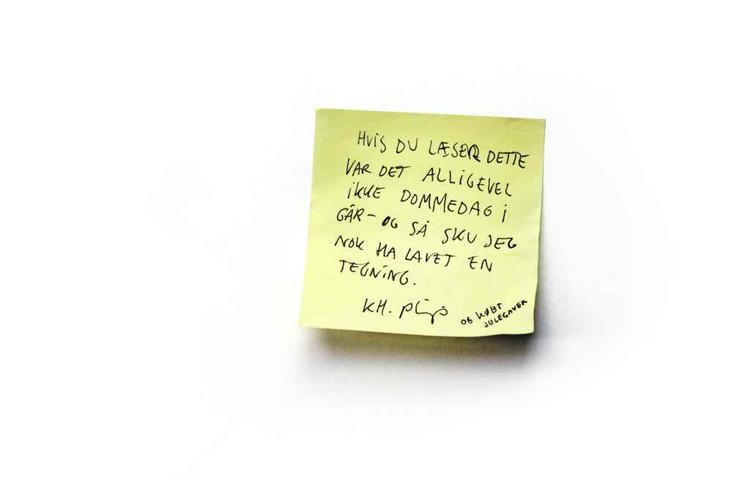 HVIS DU LÆSER DETTE
VAR DET ALLIGEVEL
IKKE DOMMEDAG I
GÅR - OG SÅ SKU JEG
NOK HA LAVET EN
TEGNING.
KH.
OG KØBT
JULEGAVER